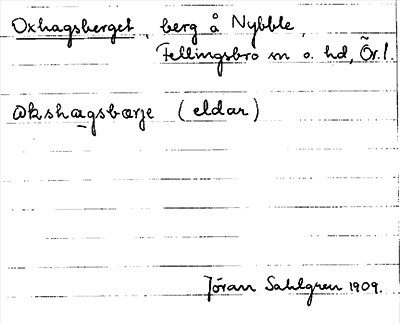 Oxhagsberget, berg å Nybble,
Fellingsbro sn o. hd, Ör. l.
økshagsbærje (eldar)
Jöran Sahlgren 1909.